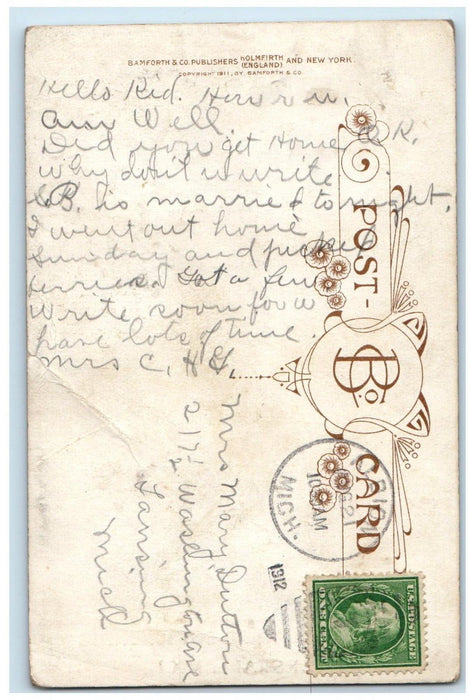 BAMFORTH & CO. PUBLISHERS HOLMFIRTH (ENGLAND) AND NEW YORK.
COPYRIGHT 1911, BY BAMFORTH & CO.
Hello Kid. How r u.
am Well.
Did you get Home O.K.
why dont u write
B. is married to night.
I went out home
Sunday and picked
berries. Got a few
write soon for u
have lots of time.
Mrs C. H. G.
POST-CARD
B Co
Mrs Mary Dutton
217½ Washington ave
Lansing
Mich
21
10 AM
MICH.
1912
U.S. POSTAGE
ONE CENT